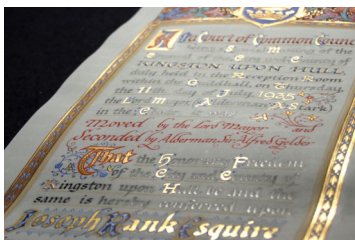 At a Court of Common Council
KINGSTON UPON HULL,
duly held in the Reception Room
within the Guildhall, on Thursday,
the 11th July 1935
the Lord Mayor (Alderman A Stark)
in the Chair
Moved by the Lord Mayor and
Seconded by Alderman Sir Alfred Gelder
That the Honorary Freedom
of the City and County of
Kingston upon Hull be and the
same is hereby conferred upon
Joseph Rank Esquire